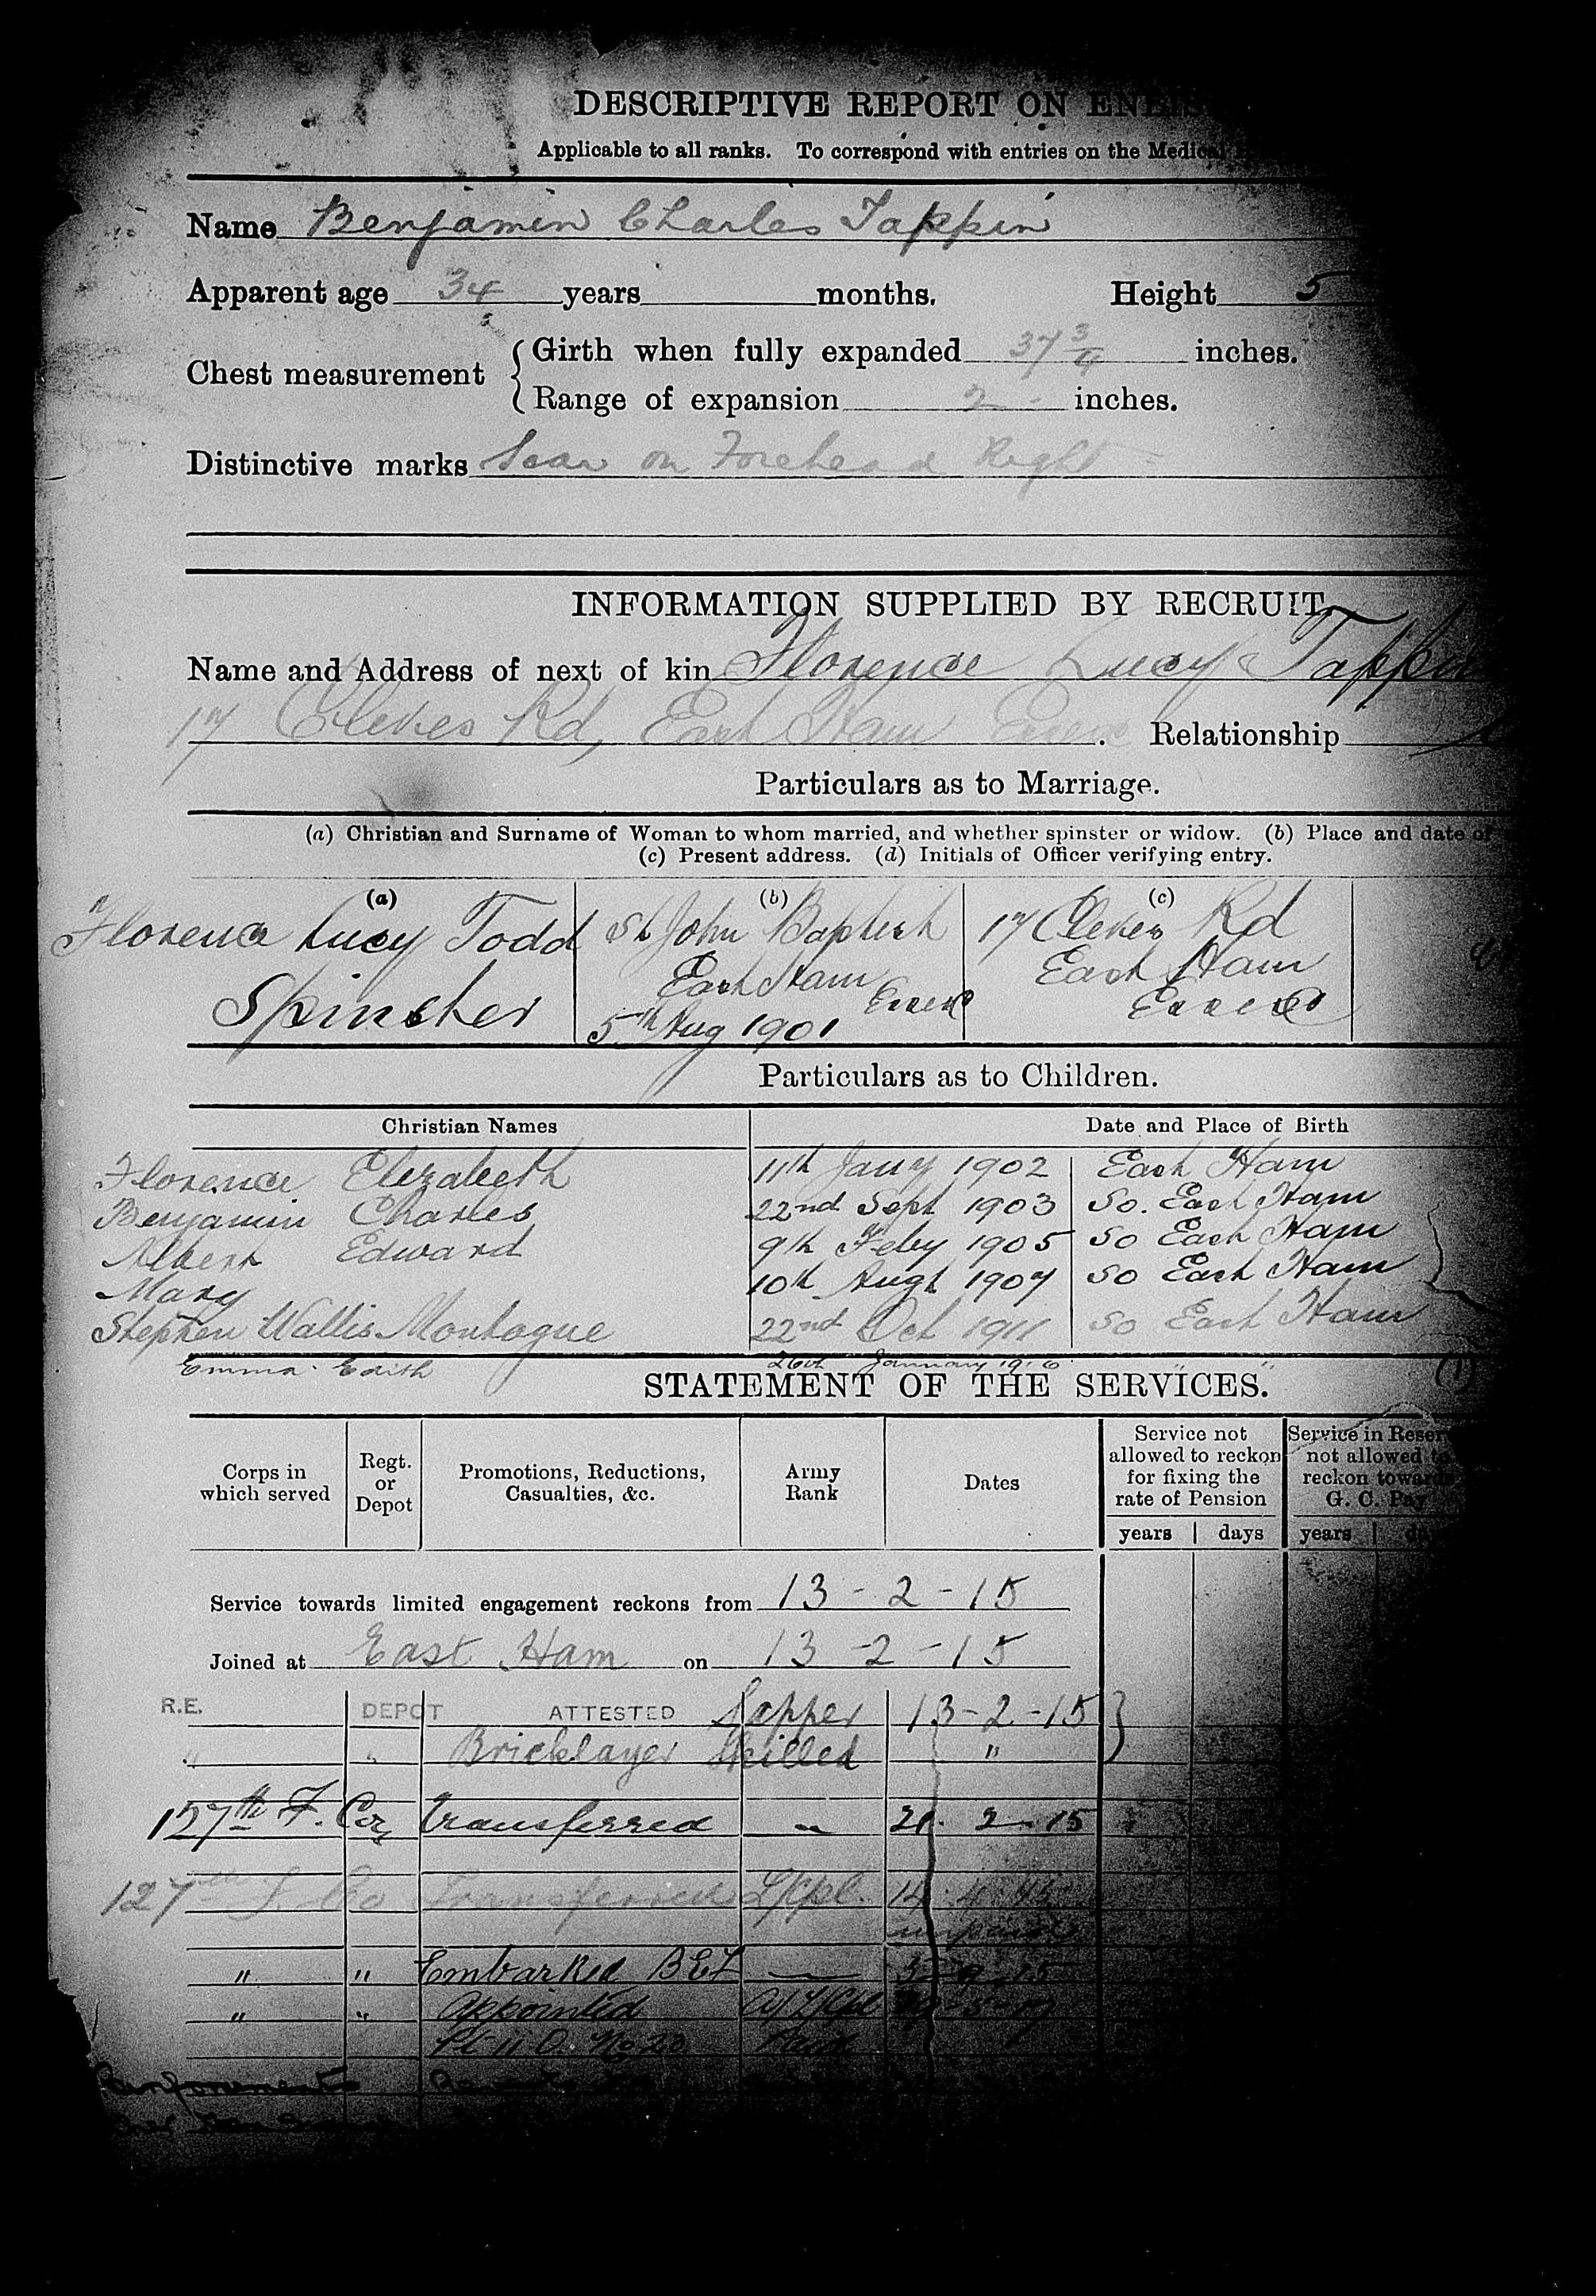 DESCRIPTIVE REPORT ON ENLIS
Applicable to all ranks. To correspond with entries on the Medical
Name Benjamin Charles Tappin
Apparent age 34 years months. Height 5
Chest measurement { Girth when fully expanded 37 3/4 inches.
Range of expansion 2 - inches.
Distinctive marks Scar on Forehead Right
INFORMATION SUPPLIED BY RECRUIT
Name and Address of next of kin Florence Lucy Tappin
17 Cleves Rd, East Ham Essex. Relationship
Particulars as to Marriage.
(a) Christian and Surname of Woman to whom married, and whether spinster or widow. (b) Place and date of
(c) Present address. (d) Initials of Officer verifying entry.
(a) (b) (c)
Florence Lucy Todd St John Baptist 17 Cleves Rd
East Ham East Ham
Spinster Essex Essex
5th Aug 1901
Particulars as to Children.
Christian Names Date and Place of Birth
Florence Elizabeth 11th Jany 1902 East Ham
Benjamin Charles 22nd Sept 1903 So. East Ham
Albert Edward 9th Feby 1905 So East Ham
Mary 10th Augt 1907 So East Ham
Stephen Wallis Montague 22nd Oct 1911 So East Ham
Emma Edith 26th January 1916 " "
(1)
STATEMENT OF THE SERVICES.
Corps in which served Regt. or Depot Promotions, Reductions, Casualties, &c. Army Rank Dates Service not allowed to reckon for fixing the rate of Pension Service in Reser not allowed to reckon towards G. C. Pay
years days years da
Service towards limited engagement reckons from 13 - 2 - 15
Joined at East Ham on 13 - 2 - 15
R.E. DEPOT ATTESTED Sapper 13 - 2 - 15
" " Bricklayer Skilled "
127th F. Coy Transferred " 21. 2. 15
127th F. Co Transferred L/Cpl. 14. 4. 15
unpaid
" " Embarked BEF 9. 15
" " Appointed A/L/Cpl 5 - 17
Pt ii O. No 20 Paid